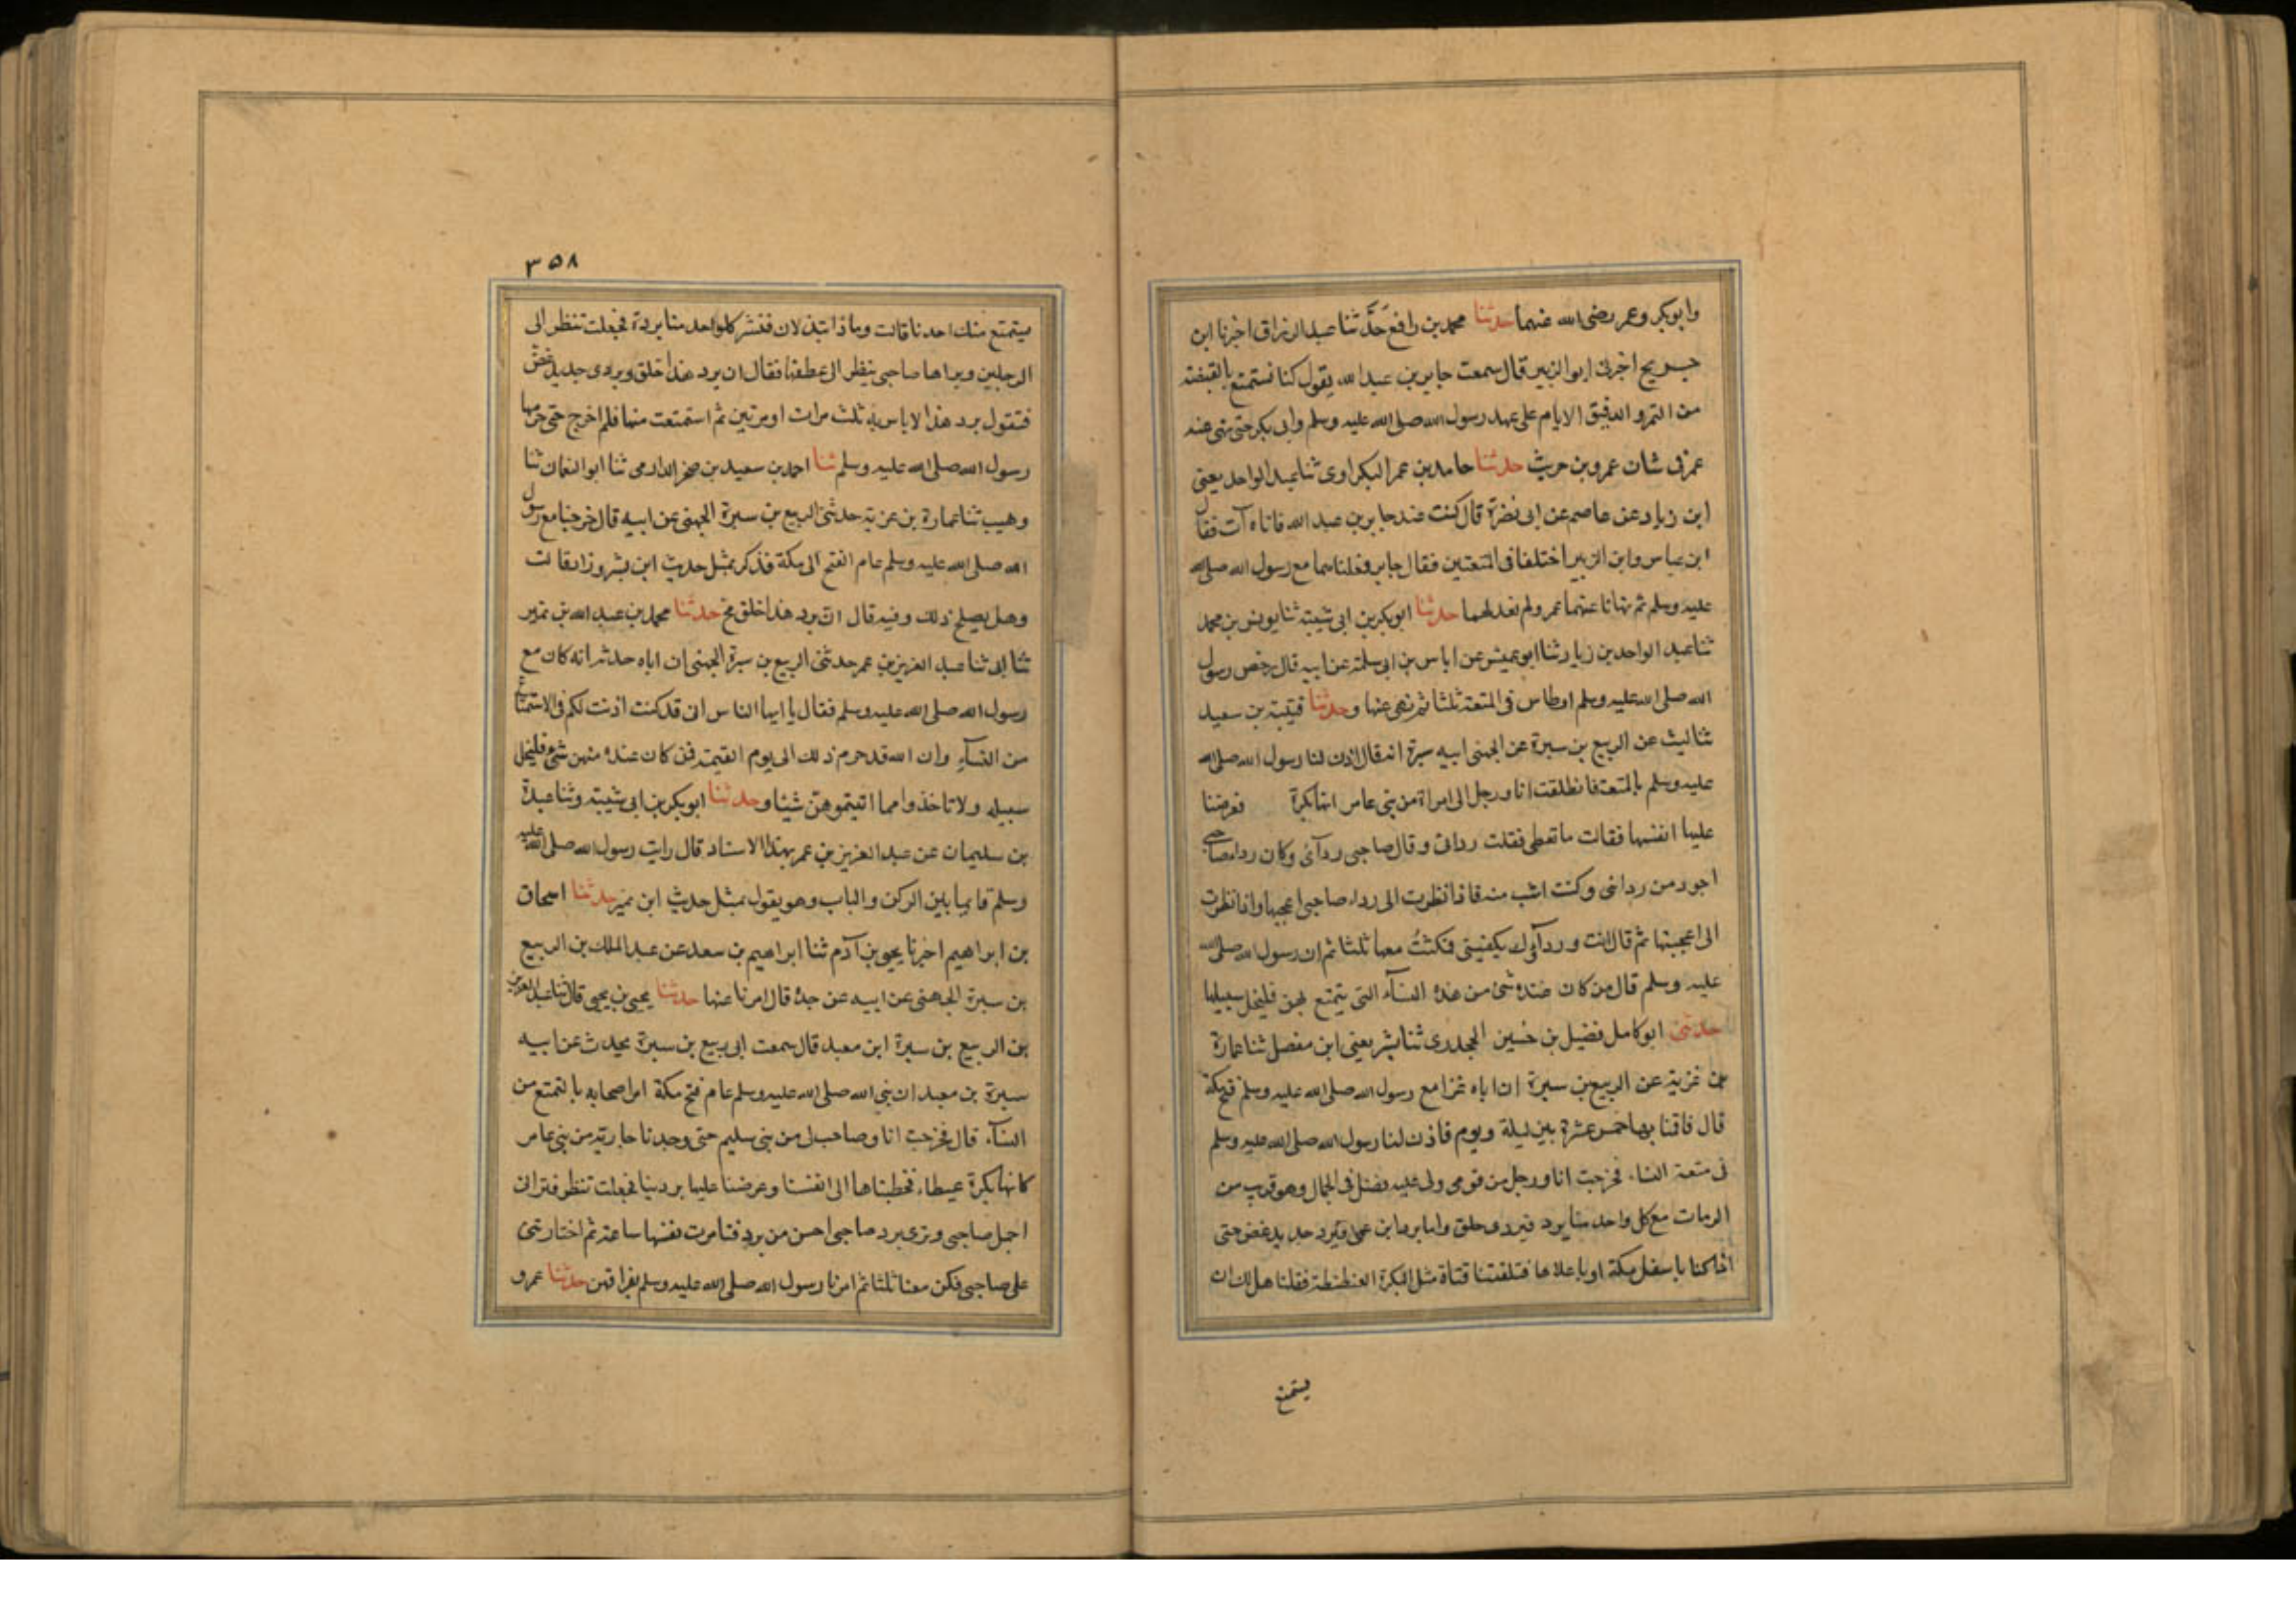 وابوبكر وعمر رضى الله عنهما حدثنا محمد بن رافع حدثنا عبد الرزاق اخبرنا ابن
جريج اخبرنى ابو الزبير قال سمعت جابر بن عبد الله يقول كنا نستمتع بالقبضة
من التمر والدقيق الايام على عهد رسول الله صلى الله عليه وسلم وابى بكر حتى نهى عنه
عمر فى شان عمرو بن حريث حدثنا حامد بن عمر البكراوى ثنا عبد الواحد يعنى
ابن زياد عن عاصم عن ابى نضرة قال كنت عند جابر بن عبد الله فاتاه آت فقال
ابن عباس وابن الزبير اختلفا فى المتعتين فقال جابر فعلناهما مع رسول الله صلى الله
عليه وسلم ثم نهانا عنهما عمر ولم نعد لهما حدثنا ابوبكر بن ابى شيبة ثنا يونس بن محمد
ثنا عبد الواحد بن زياد ثنا ابو عميس عن اياس بن ابى سلمة عن ابيه قال رخص رسول
الله صلى الله عليه وسلم اوطاس فى المتعة ثلثا ثم نهى عنها وحدثنا قتيبة بن سعيد
ثنا ليث عن الربيع بن سبرة عن الجهنى ابيه سبرة انه قال اذن لنا رسول الله صلى الله
عليه وسلم بالمتعة فانطلقت انا ورجل الى امراة من بنى عامر انها بكرة فعرضنا
عليها انفسها فقالت ما تعطى فقلت ردائى وقال صاحبى ردآئى وكان رداء صاحبى
اجود من ردائى وكنت اشب منه فاذا نظرت الى رداء صاحبى اعجبها واذا نظرت
الى اعجبتها ثم قال انت وردآوك يكفينى فمكثت معها ثلثا ثم ان رسول الله صلى الله
عليه وسلم قال من كان عنده شى من هذه النسآء التى يتمتع بهن فليخل سبيلها
حدثنى ابو كامل فضيل بن حسين الجحدرى ثنا بشر يعنى ابن مفضل ثنا عمارة
بن غزية عن الربيع بن سبرة ان اباه غزا مع رسول الله صلى الله عليه وسلم فتح مكة
قال فاقنا بها خمس عشرة بين ليلة ويوم فاذن لنا رسول الله صلى الله عليه وسلم
فى متعة النساء فخرجت انا ورجل من قومى ولى عليه فضل فى الجمال وهو قريب من
الدمات مع كل واحد منا برد فبردى خلق واما برد ابن عمى فبرد جديد غض حتى
اذا كنا باسفل مكة او باعلاها فتلقتنا فتاة مثل البكرة العنطنطة فقلنا هل لك ان
يستمتع
٣٥٨
يستمتع منك احدنا قالت وما ذا تبذلان فنشر كلواحد منا بردة فجعلت تنظر الى
الرجلين ويراها صاحبى ينظر الى عطفها فقال ان برد هذا خلق وبردى جديد غض
فتقول برد هذا لا باس به ثلث مرات او مرتين ثم استمتعت منها فلم اخرج حتى حرمها
رسول الله صلى الله عليه وسلم ثنا احمد بن سعيد بن صخر الدارمى ثنا ابو النعمان ثنا
وهيب ثنا عمارة بن غزية حدثنى الربيع بن سبرة الجهنى عن ابيه قال خرجنا مع رسول
الله صلى الله عليه وسلم عام الفتح الى مكة فذكر بمثل حديث ابن بشر وزاد قالت
وهل يصلح ذلك وفيه قال ان برد هذا خلق مح حدثنا محمد بن عبد الله بن نمير
ثنا ابى ثنا عبد العزيز بن عمر حدثنى الربيع بن سبرة الجهنى ان اباه حدثه انه كان مع
رسول الله صلى الله عليه وسلم فقال يا ايها الناس انى قد كنت اذنت لكم فى الاستمتاع
من النسآء وان الله قد حرم ذلك الى يوم القيمة فمن كان عنده منهن شئ فليخل
سبيله ولا تاخذوا مما اتيتموهن شيئا وحدثنا ابوبكر بن ابى شيبة وثنا عبدة
بن سليمان عن عبد العزيز بن عمر بهذا الاسناد قال رايت رسول الله صلى الله عليه
وسلم قايما بين الركن والباب وهو يقول بمثل حديث ابن نمير حدثنا اسحاق
بن ابراهيم اخبرنا يحيى بن آدم ثنا ابراهيم بن سعد عن عبد الملك بن الربيع
بن سبرة الجهنى عن ابيه عن جده قال امرنا عنها حدثنا يحيى بن يحيى قال ثنا عبد العزيز
بن الربيع بن سبرة ابن معبد قال سمعت ابى ربيع بن سبرة يحدث عن ابيه
سبرة بن معبد ان نبى الله صلى الله عليه وسلم عام فتح مكة امر اصحابه بالتمتع من
النسآء قال فخرجت انا وصاحب لى من بنى سليم حتى وجدنا جارية من بنى عامر
كانها بكرة عيطاء فخطبناها الى انفسنا وعرضنا عليها بردينا فجعلت تنظر فترانى
اجمل صاحبى وترى برد صاحبى احسن من برد فتامرت نفسها ساعة ثم اختارتنى
على صاحبى فكن معنا ثلثا ثم امرنا رسول الله صلى الله عليه وسلم بفراقهن حدثنا عمرو